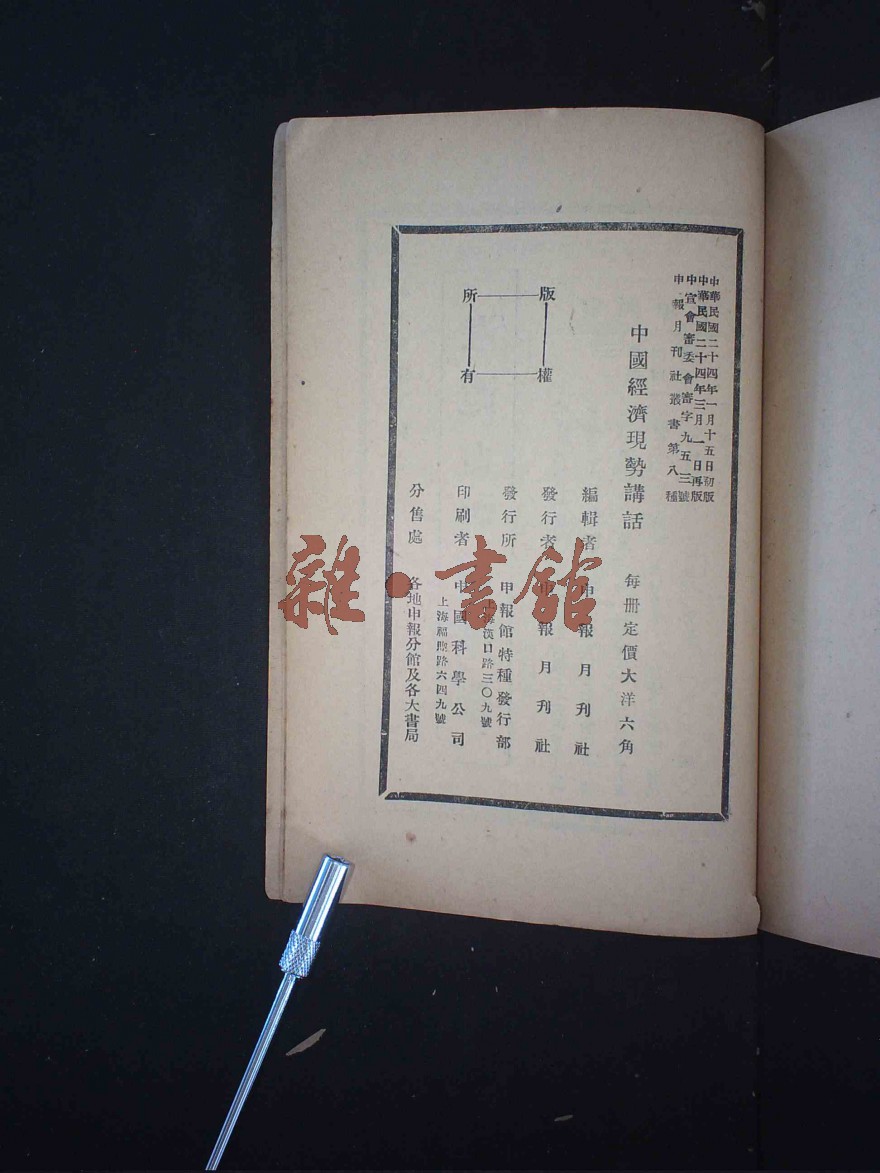 中華民國二十四年一月十五日初版
中華民國二十四年三月一日再版
中宣會審委會審字九五三號
申報月刊社叢書第八種
中國經濟現勢講話
每冊定價大洋六角
版權
所有
編輯者 申報月刊社
發行者 申報月刊社
發行所 申報館特種發行部
上海漢口路三〇九號
印刷者 中國科學公司
上海福煦路六四九號
分售處 各地申報分館及各大書局
雜·書館